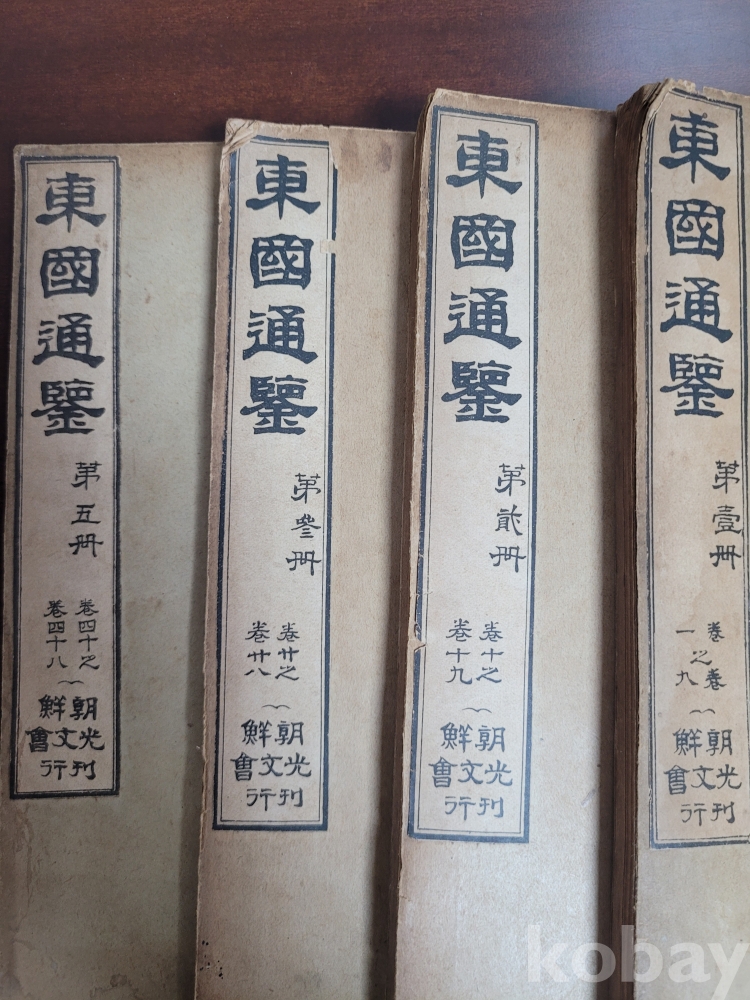 東國通鑒
第壹冊
卷一之卷九
朝鮮
光文會
刊行
東國通鑒
第貳冊
卷十之
卷十九
朝鮮
光文會
刊行
東國通鑒
第叄冊
卷廿之
卷廿八
朝鮮
光文會
刊行
東國通鑒
第五冊
卷四十之
卷四十八
朝鮮
光文會
刊行
kobay